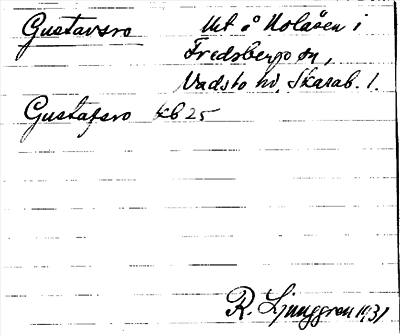 Gustavsro Urt å Holåsen i
Fredsbergs sn,
Vadsbo hd, Skarab. l.
Gustafsro kb 25
R. Ljunggren 1931